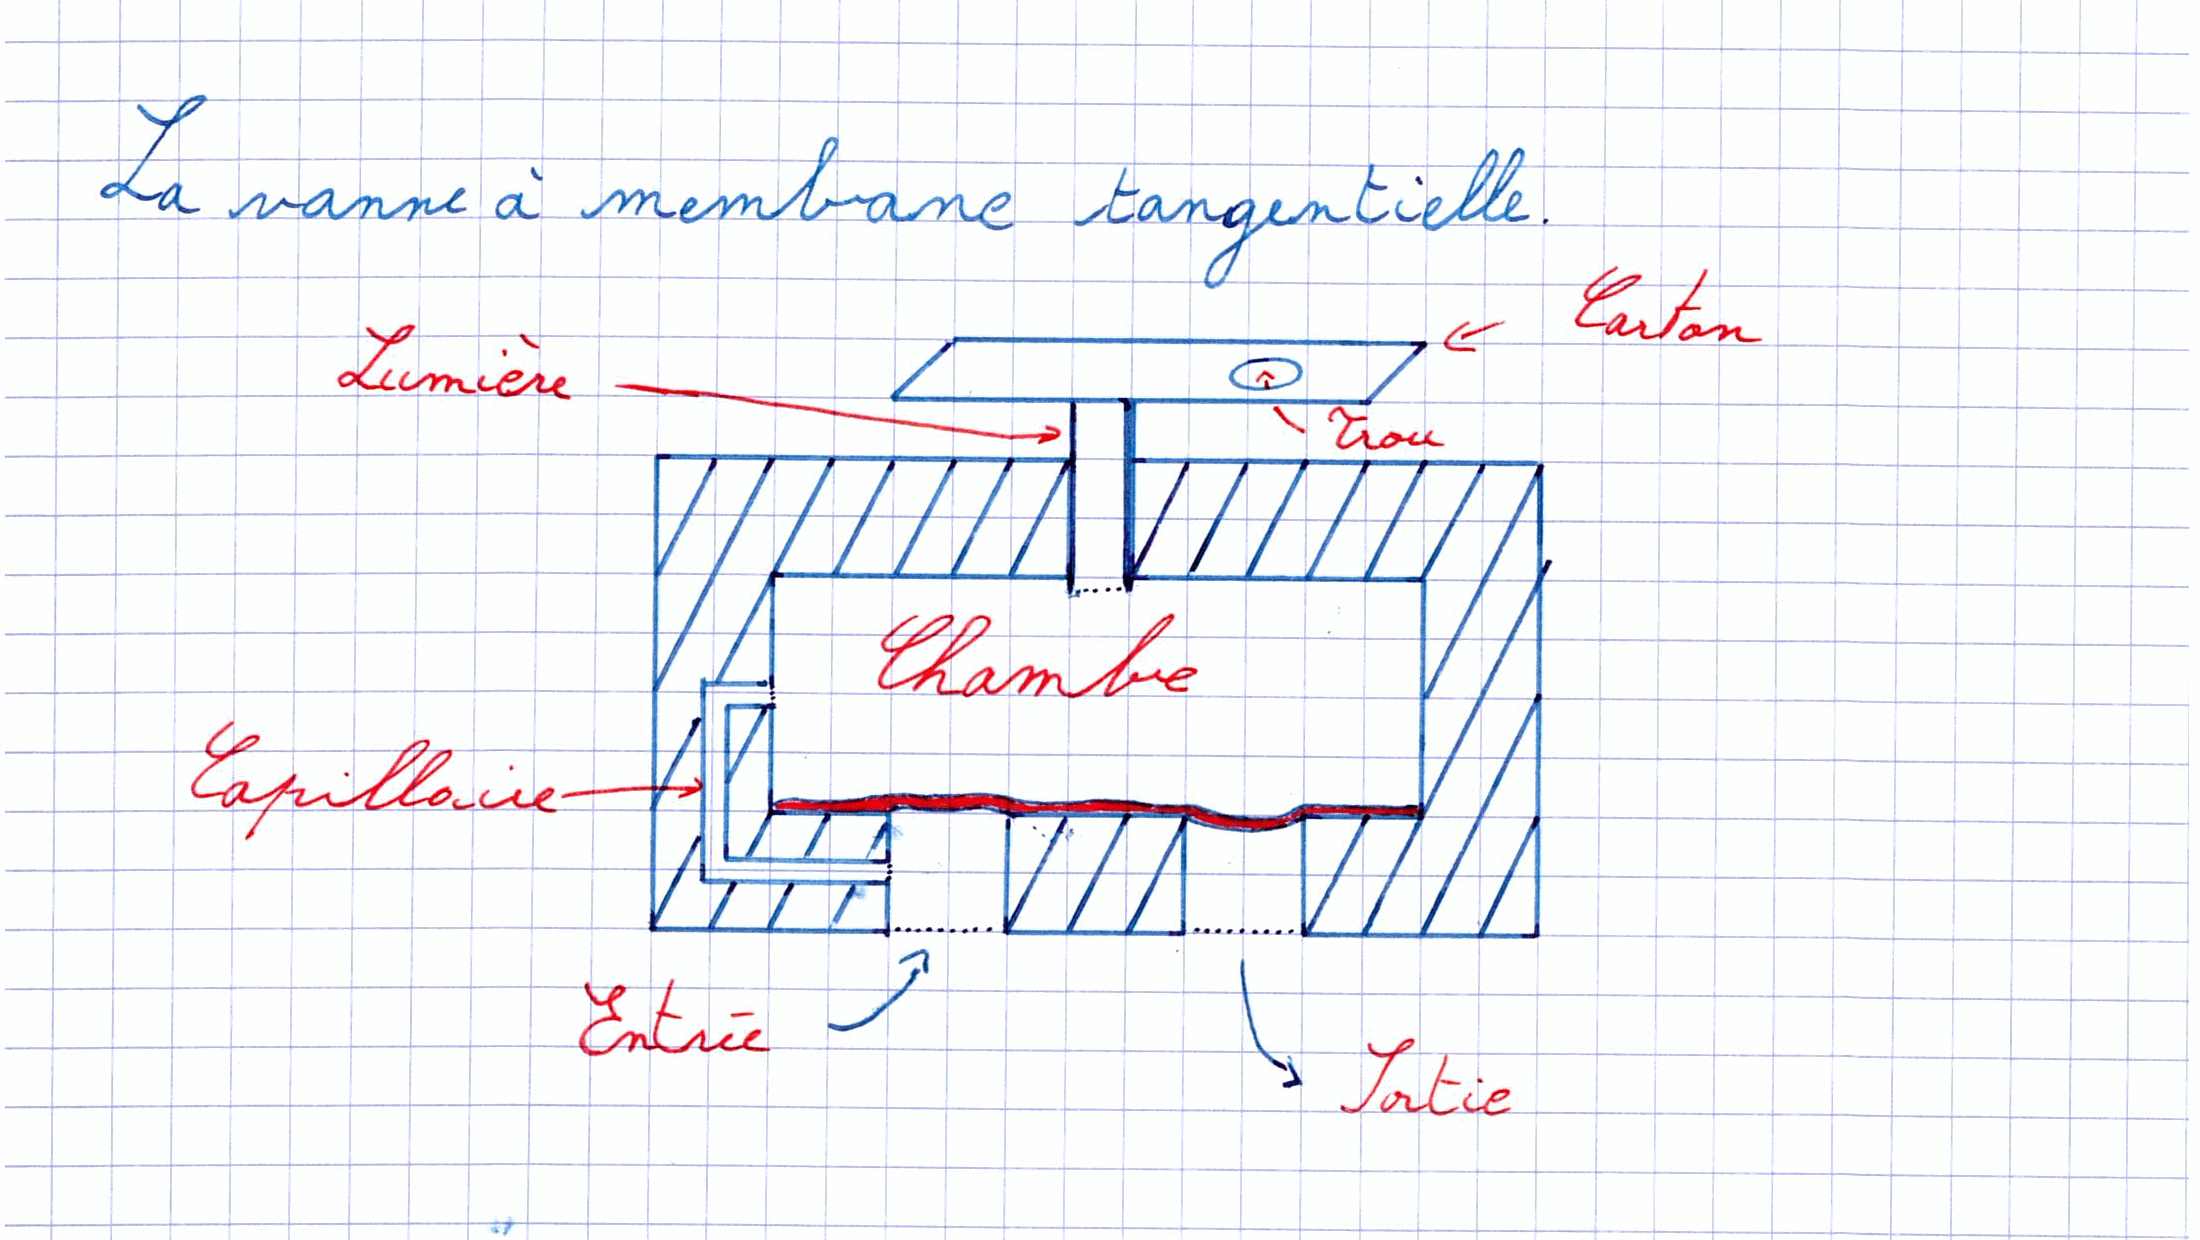 La vanne à membrane tangentielle.
Carton
Lumière
Trou
Chambre
Capillaire
Entrée
Sortie